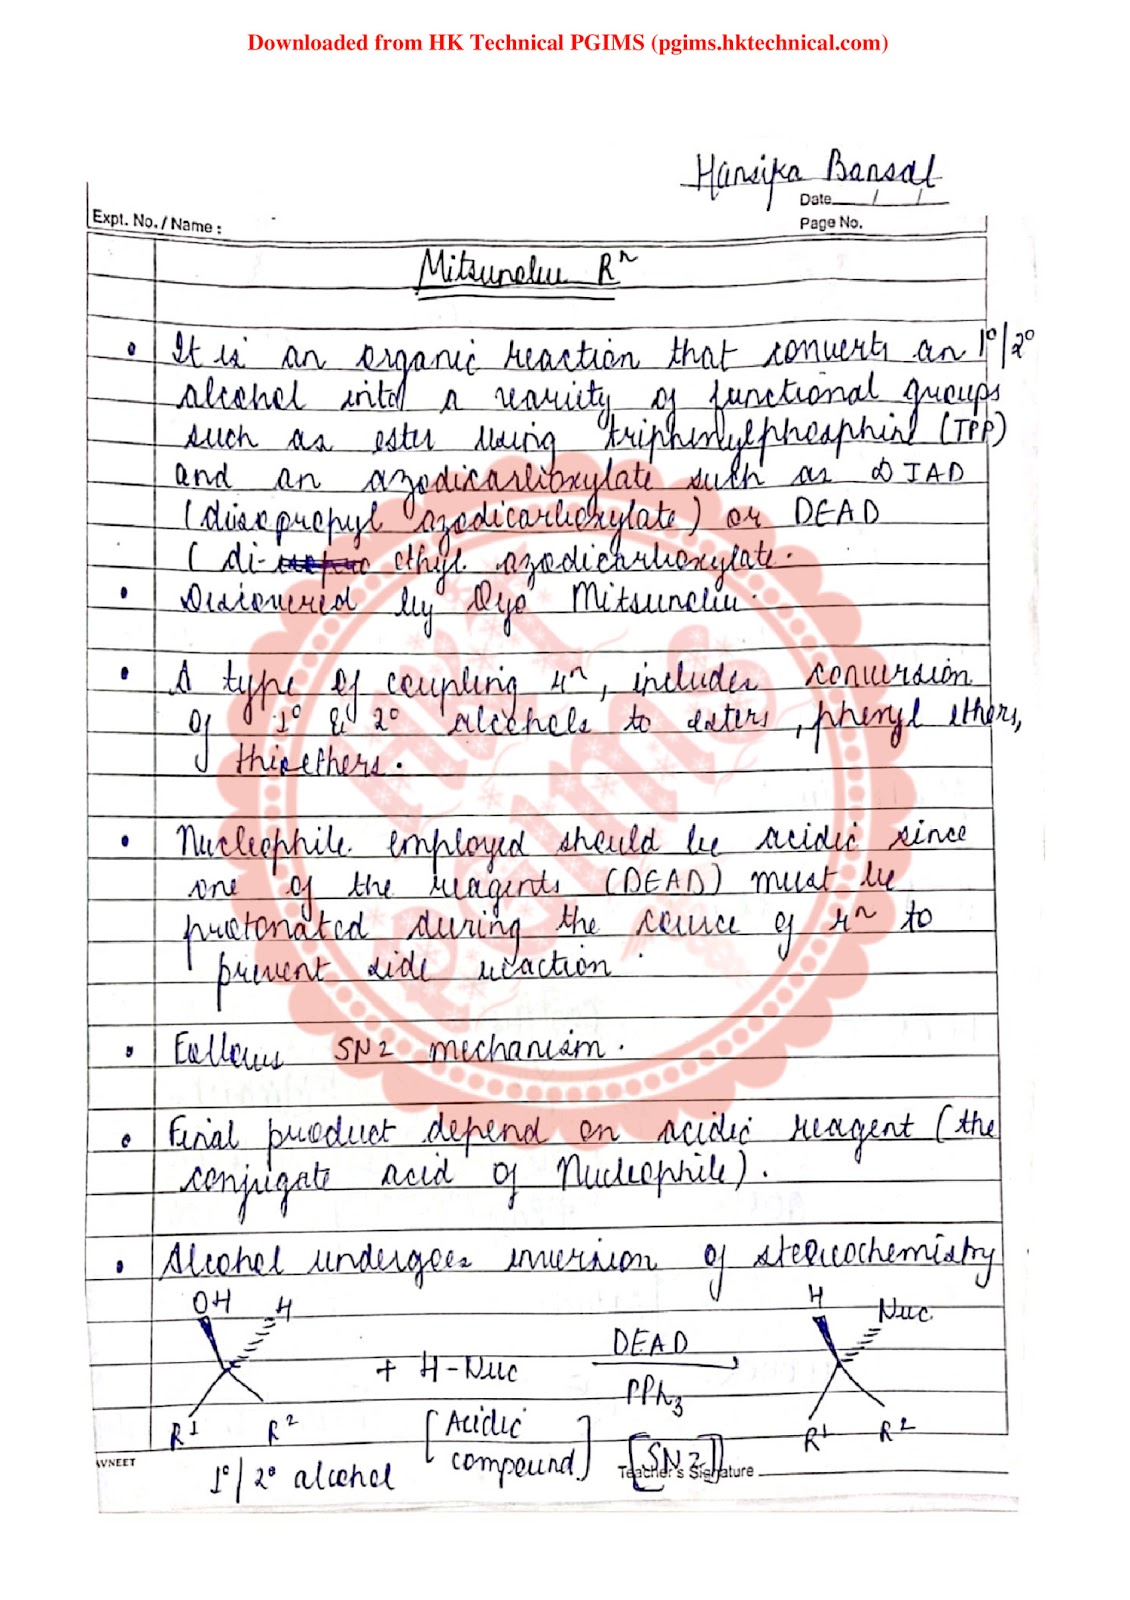 Downloaded from HK Technical PGIMS (pgims.hktechnical.com)
Hansika Bansal
Date / /
Expt. No. / Name :
Page No.
Mitsunobu Rⁿ
• It is an organic reaction that converts an 1°/2°
alcohol into a variety of functional groups
such as ester using triphenylphosphine (TPP)
and an azodicarboxylate such as DIAD
(diisopropyl azodicarboxylate) or DEAD
(di- ethyl azodicarboxylate.
• Discovered by Oyo Mitsunobu.
• A type of coupling rⁿ, includes conversion
of 1° & 2° alcohols to esters, phenyl ethers,
thioethers.
• Nucleophile employed should be acidic since
one of the reagents (DEAD) must be
protonated during the cource of rⁿ to
prevent side reaction.
• Follows SN2 mechanism.
• Final product depend on acidic reagent (the
conjugate acid of Nucleophile).
• Alcohol undergoes inversion of stereochemistry
OH H H Nuc.
DEAD
+ H-Nuc
PPh₃
R¹ R² [Acidic R¹ R²
compound] [SN2]
AVNEET
Teacher's Signature
1°/2° alcohol
HK
PGIMS